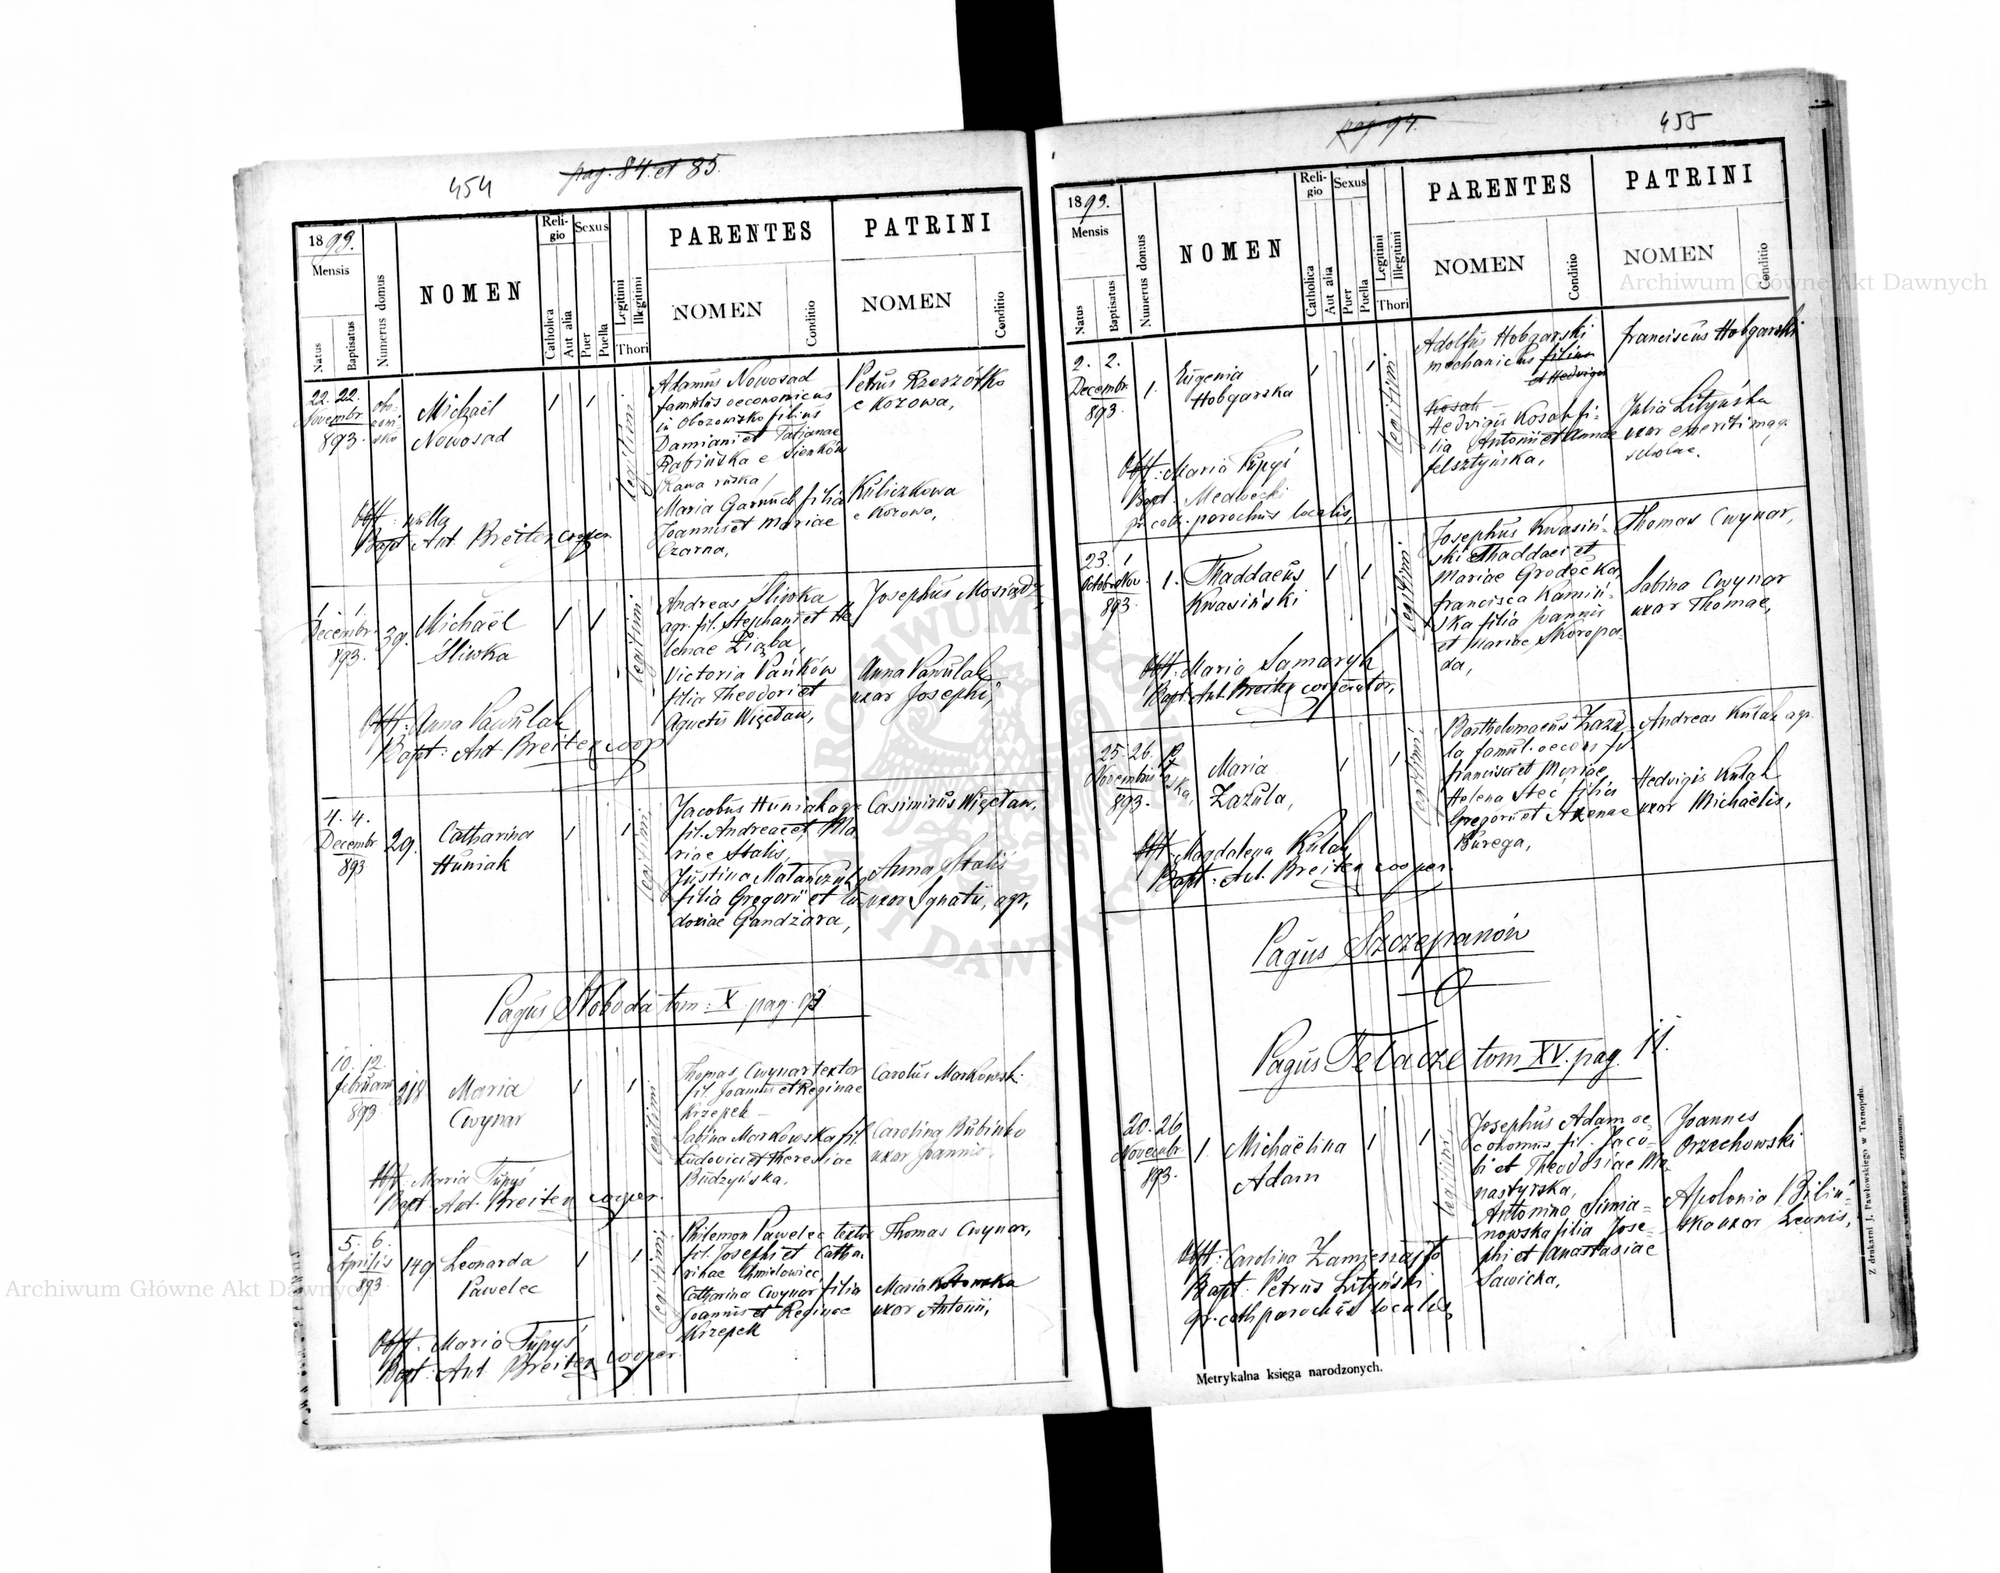 454
pag. 84. et 85.
1893.
Mensis
Natus
Baptisatus
Numerus domus
NOMEN
Reli-
gio
Catholica
Aut alia
Sexus
Puer
Puella
Legitimi
Illegitimi
Thori
PARENTES
NOMEN
Conditio
PATRINI
NOMEN
Conditio
22. 22.
Novembr
893.
Michaël
Nowosad
1
1
legitimi
Adamus Nowosad
famulus oeconomicus
in Obozowisko filius
Damiani et Tatjanae
Rabińska e Sienków
Rawa ruska
Maria Garmuch filia
Joannis et Mariae
Czarna,
Petrus Rzeszótko
e Kozowa,
Kuliczkowa
e Kozowa,
Obst. nulla
Bapt. Ant Breiter cooper.
1. 1.
Decembr.
893.
39.
Michaël
Sliwka
1
1
legitimi
Andreas Sliwka
agr. fil. Stephani et He
lenae Zięba,
Victoria Pańków
filia Theodori et
Agnetis Więcław,
Josephus Mosiądz,
Anna Pawulak
uxor Josephi,
Obst. Anna Pawulak
Bapt: Ant Breiter coop
4. 4.
Decembr
893
29.
Catharina
Huniak
1
1
legitimi
Jacobus Huniak agr
fil. Andreae et Ma
riae Stalis,
Justina Matańczuk
filia Gregorii et Eu
doxiae Gandżara,
Casimirus Więcław,
Anna Stalis
uxor Ignatii, agr,
Pagus Słoboda tom: X pag. 92
10. 12
februarii
893
218
Maria
Cwynar
1
1
legitimi
Thomas Cwynar textor
fil. Joannis et Reginae
Krzepek
Sabina Markowska fil.
Ludovici et Theresiae
Budzyńska.
Carolus Markowski
Carolina Rubinko
uxor Joannis,
Obst. Maria Tupyś
Bapt. Ant. Breiter cooper.
5. 6.
Aprilis
893
149
Leonarda
Pawelec
1
1
legitimi
Philemon Pawelec textor
fil. Josephi et Catha
rinae Chmielowiec,
Catharina Cwynar filia
Joannis et Reginae
Krzepek
Thomas Cwynar,
Maria Kotowska
uxor Antonii,
Obst. Maria Tupyś
Bapt. Ant Breiter cooper.
pag 94.
455
1893.
Mensis
Natus
Baptisatus
Numerus domus
NOMEN
Reli-
gio
Catholica
Aut alia
Sexus
Puer
Puella
Legitimi
Illegitimi
Thori
PARENTES
NOMEN
Conditio
PATRINI
NOMEN
Conditio
2. 2.
Decembr
893.
1.
Eugenia
Hobgarska
1
1
legitimi
Adolfus Hobgarski
mechanicus filius
et Hedvigis
Kosah
Hedvigis Kosah fi-
lia Antonii et Annae
felsztyńska,
franciscus Hobgarski
Julia Lityńska
uxor emeriti mag.
scholae.
Obst: Maria
Bapt. Medwecki
gr. cath. parochus localis,
23. 1
893.
1.
Thaddaeus
Kwasiński
1
1
legitimi
Josephus Kwasiń-
ski Thaddaei et
Mariae Grodecka,
francisca Kamiń-
ska filia Joannis
et Mariae Skoropa-
da,
Thomas Cwynar,
Sabina Cwynar
uxor Thomae,
Obst: Maria Samaryk
Bapt. Ant. Breiter cooperator,
25. 26.
Novembris
893.
Maria
Zazula,
1
1
legitimi
Bartholomaeus Zazu-
la famul. oecon. fil
francisci et Mariae,
Helena Stec filia
Gregorii et Axenae
Burega,
Andreas Kulak agr.
Hedvigis Kulak
uxor Michaëlis,
Obst. Magdalena Kulak
Bapt. Ant. Breiter cooper.
Pagus Szczepanów
Pagus Telacze tom XV. pag. 11.
20. 26
Novembr
893.
1.
Michaëlina
Adam
1
1
legitimi
Josephus Adam oe-
conomus fil. Jaco-
bi et Theodosiae Mo-
nastyrska,
Antonina Simia-
nowska filia Jose-
phi et Anastasiae
Sawicka,
Joannes
Orzechowski
Apolonia Biliń-
ska uxor Leonis,
Bapt. Petrus Lityński
gr. cath parochus localis,
Metrykalna księga narodzonych.
Z drukarni J. Pawłowskiego w Tarnopolu.
Archiwum Główne Akt Dawnych
Archiwum Główne Akt Dawnych
ARCHIWUM GŁÓWNE AKT DAWNYCH